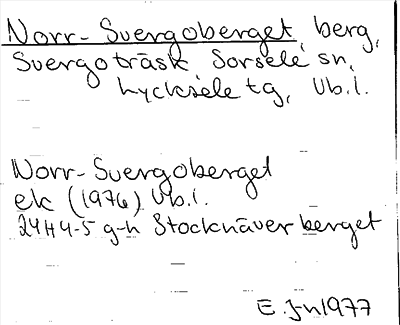 Norr-Svergoberget, berg,
Svergoträsk, Sorsele sn,
Lycksele tg, Vb.l.
Norr-Svergoberget
ek (1976) Vb.l.
24H4-5 g-h Stocknäverberget
E. J-n 1977